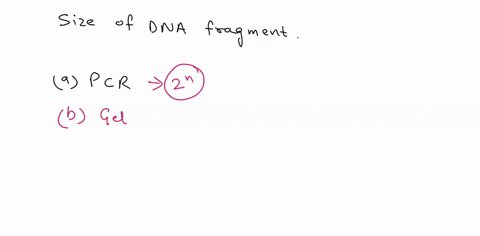 Size of DNA fragment.
(a) PCR → 2ⁿ
(b) Gel